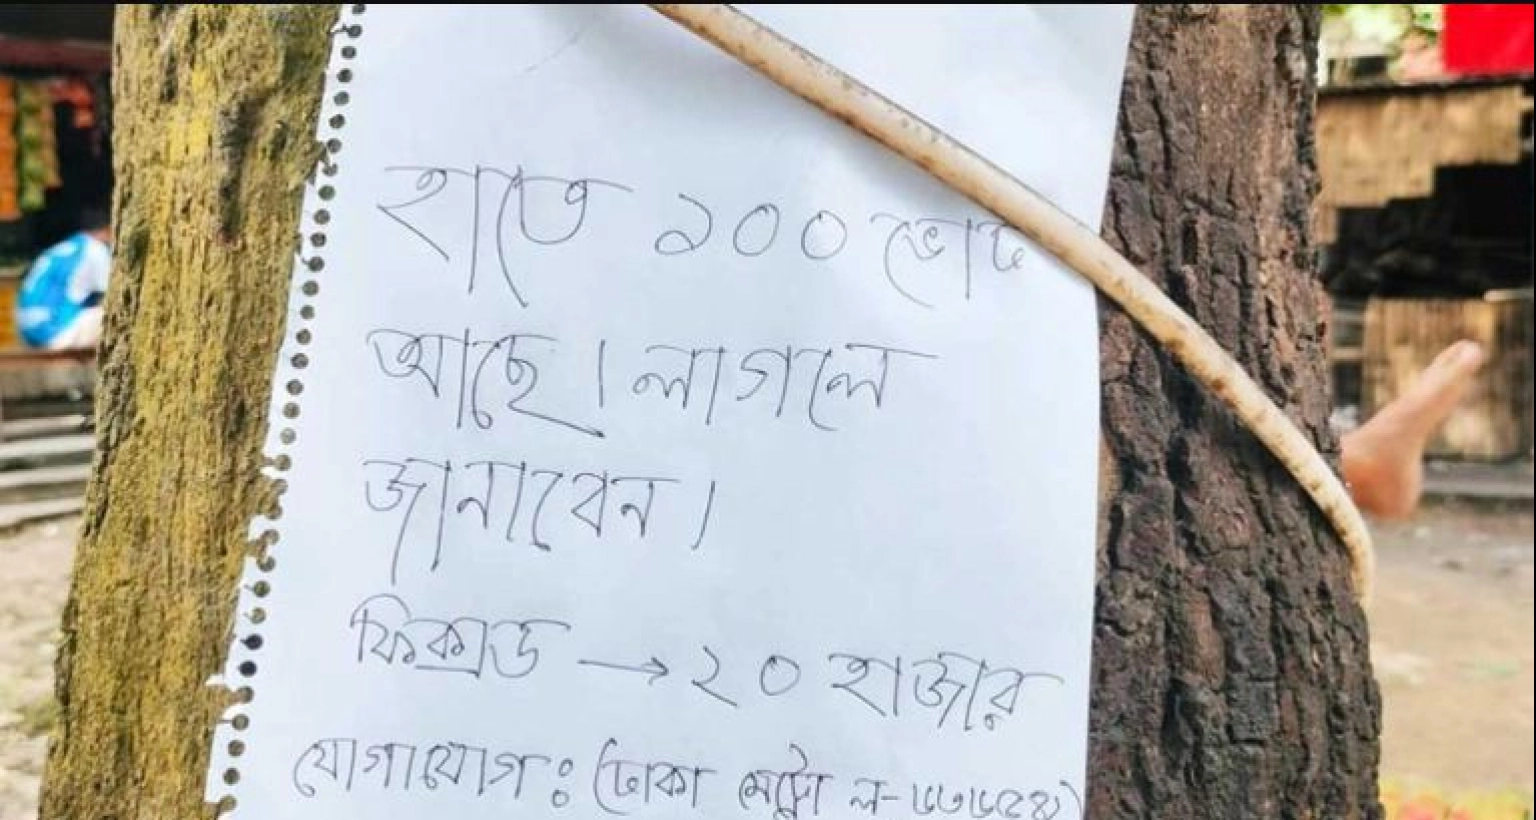 হাতে ১০০ ভোট
আছে। লাগলে
জানাবেন।
ফিক্সড → ২০ হাজার
যোগাযোগ: (ঢাকা মেট্রো ল-৬৩৬৫৪)